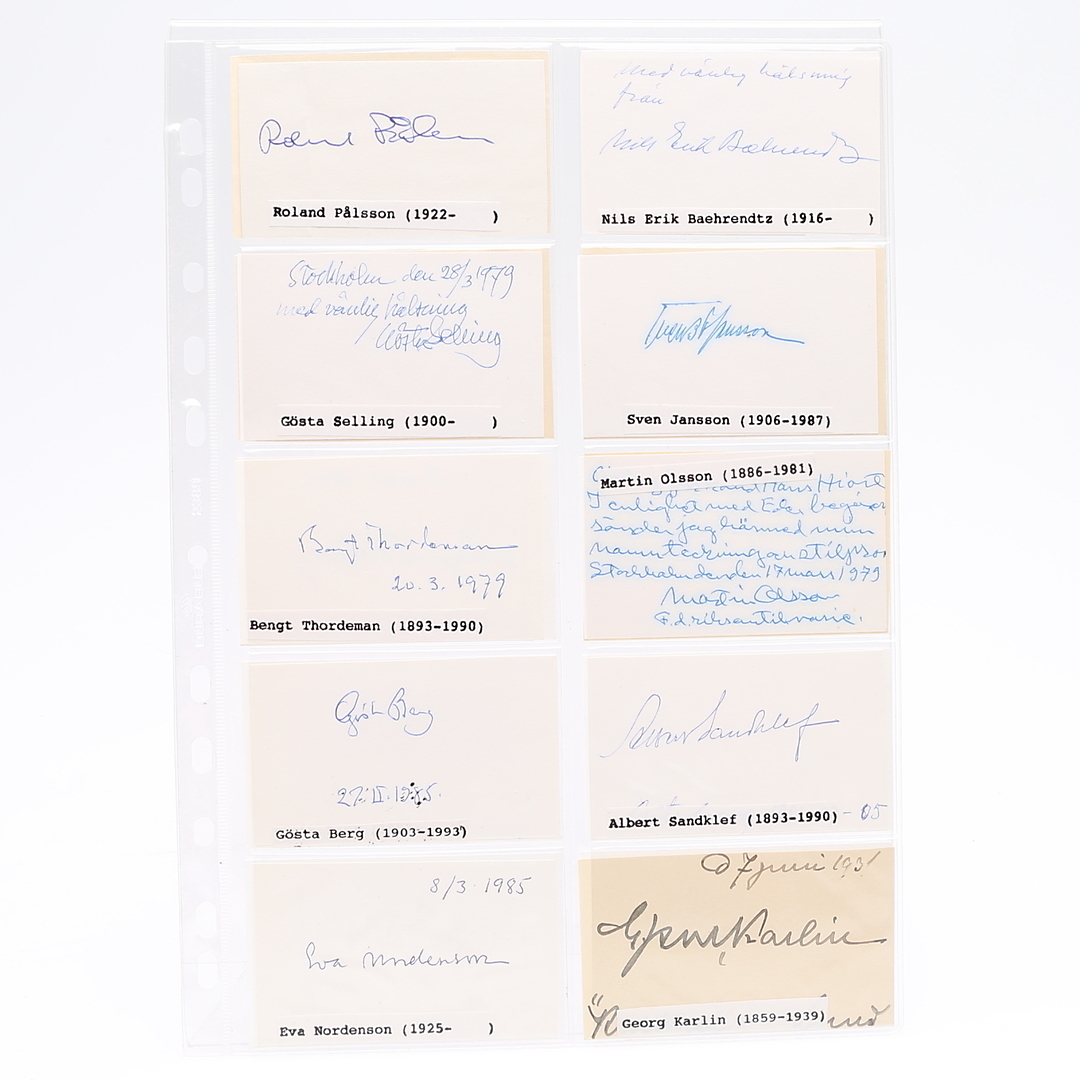 Roland Pålsson
Roland Pålsson (1922- )
med vänlig hälsning
från
Nils Erik Baehrendtz
Nils Erik Baehrendtz (1916- )
Stockholm den 28/3 1979
med vänlig hälsning
Gösta Selling
Gösta Selling (1900- )
Sven B F Jansson
Sven Jansson (1906-1987)
Bengt Thordeman
20.3.1979
Bengt Thordeman (1893-1990)
Martin Olsson (1886-1981)
Hans Hjort
I enlighet med Eder begäran
sänder jag härmed min
namnteckning
Stockholm den 17 mars 1979
Martin Olsson
F.d. riksantikvarie.
Gösta Berg
27.II.1985.
Gösta Berg (1903-1993)
Albert Sandklef
Albert Sandklef (1893-1990) - 05
8/3 1985
Eva Nordenson
Eva Nordenson (1925- )
d 7 juni 1931
G J:son Karlin
Georg Karlin (1859-1939)